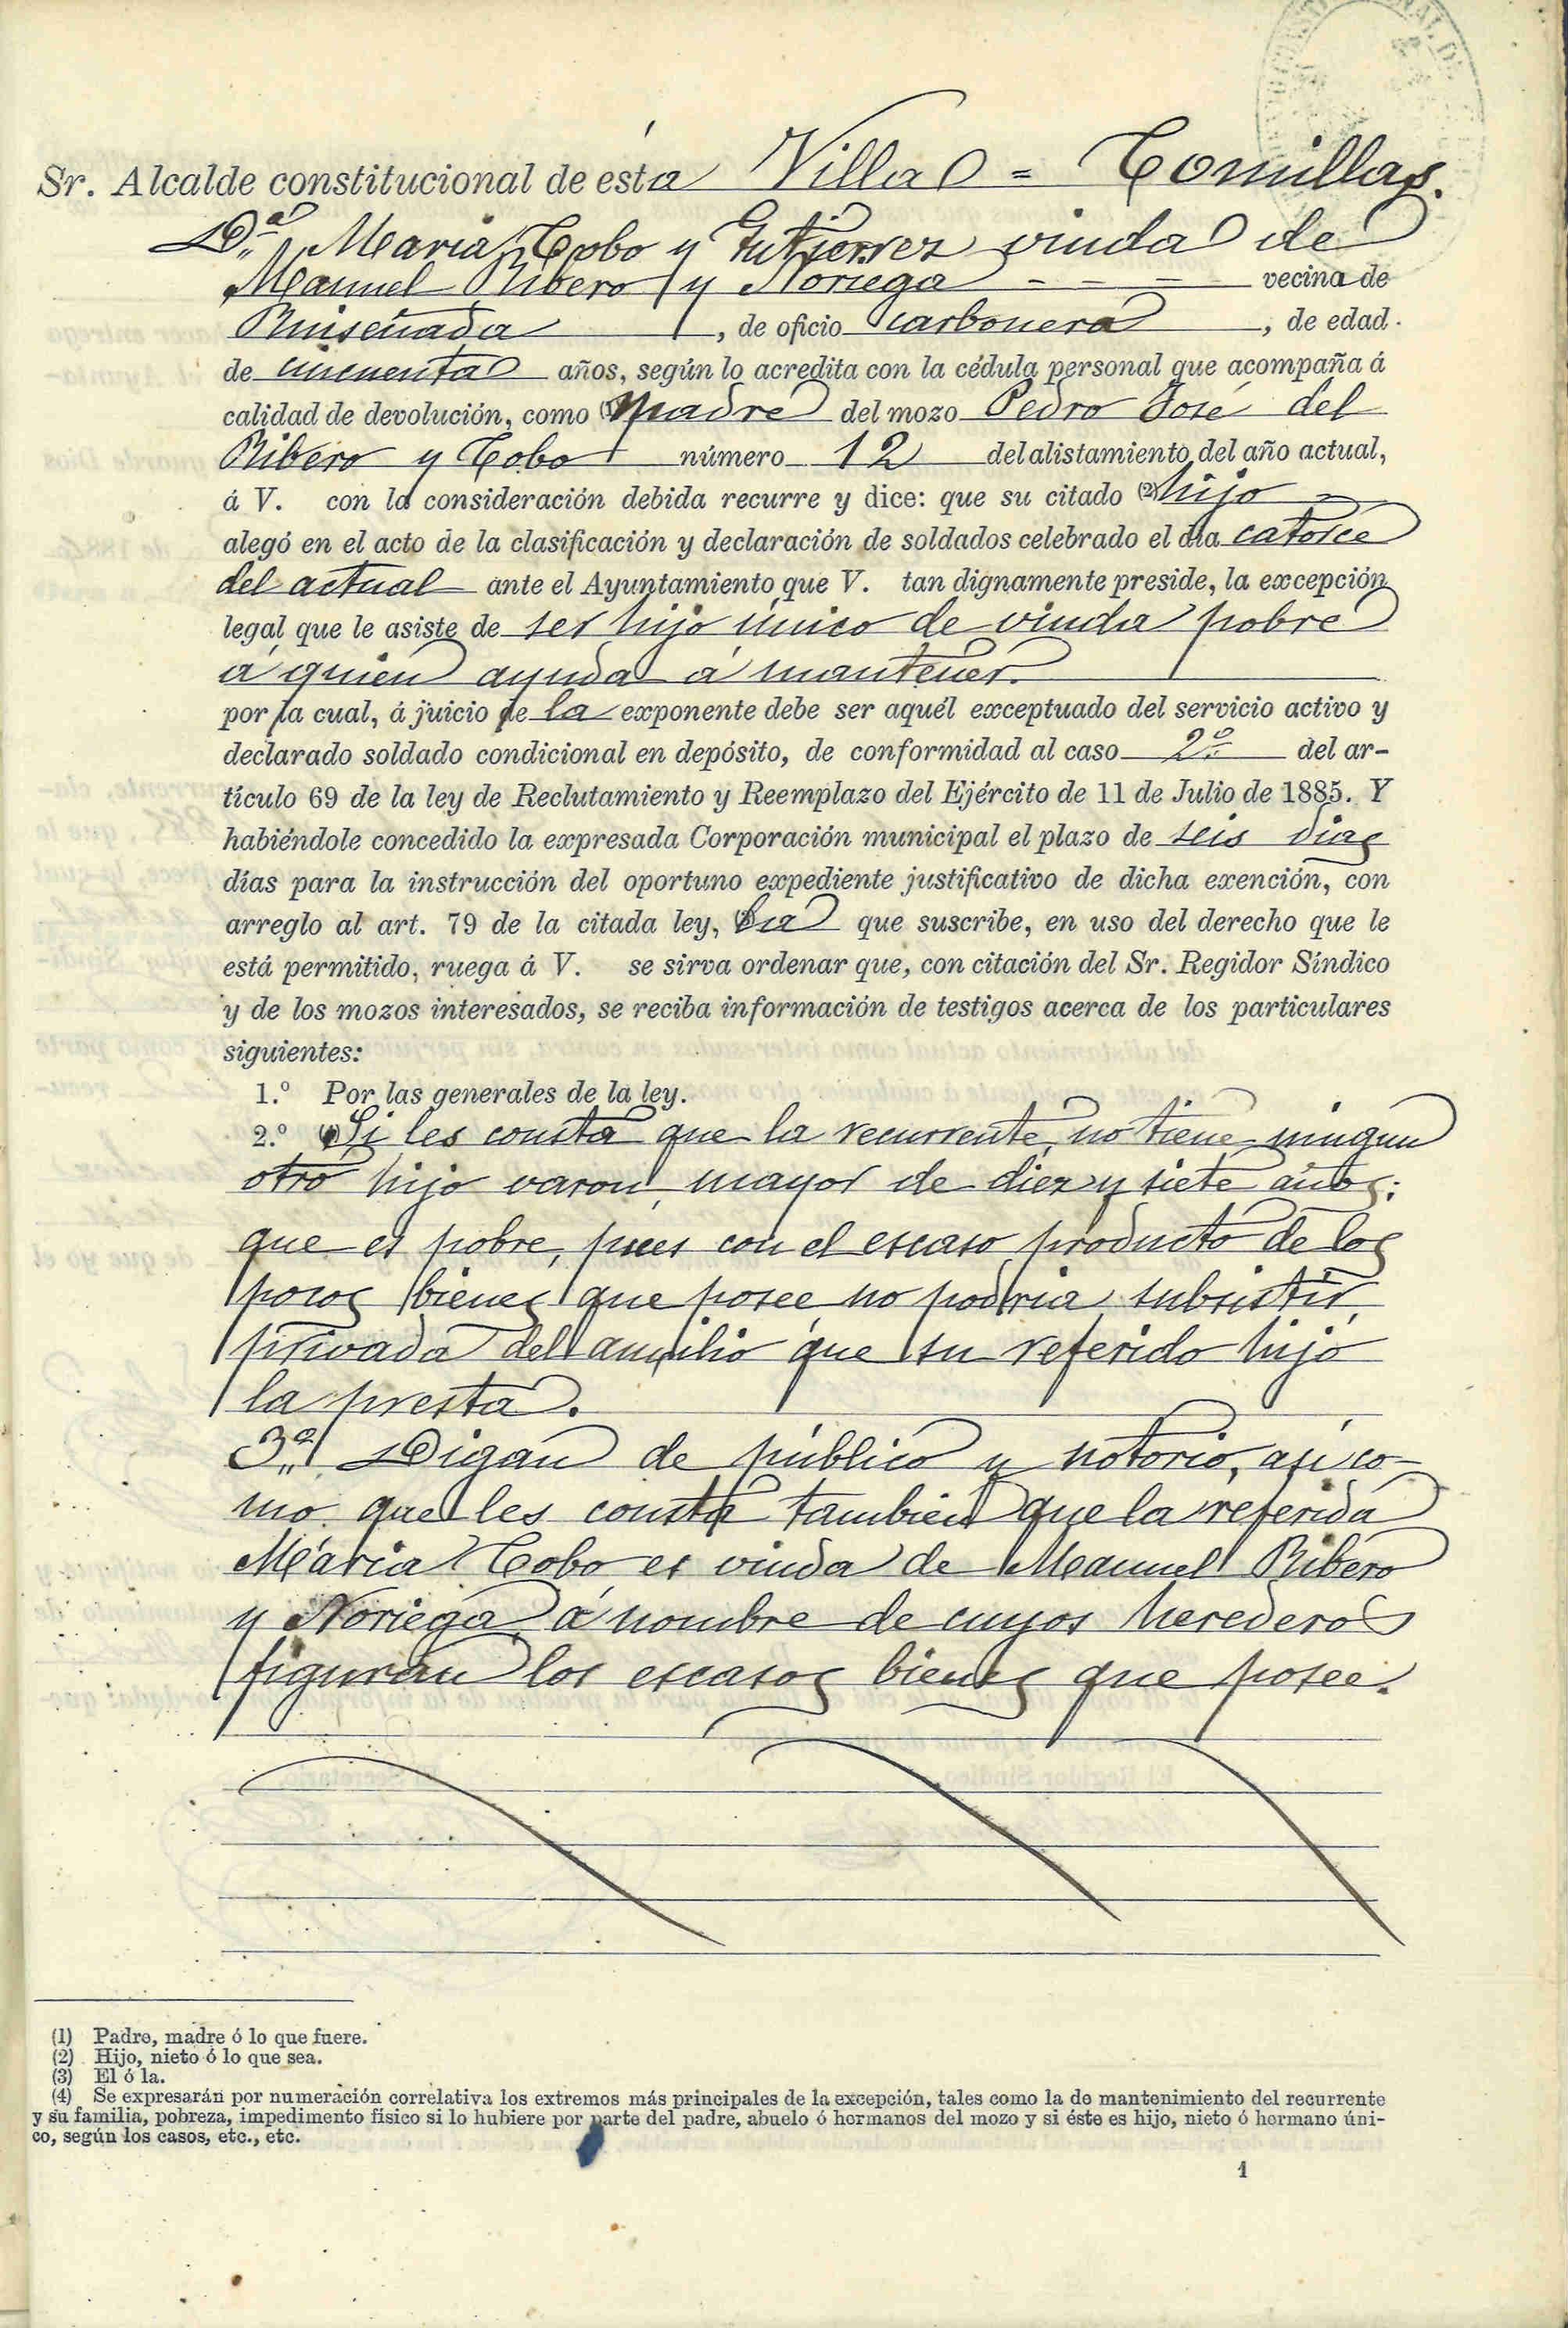 Sr. Alcalde constitucional de esta Villa = Comillas.
D.ª Maria Cobo y Gutierrez viuda de
Manuel Ribero y Noriega - - - vecina de
Ruiseñada, de oficio carbonera, de edad
de cincuenta años, según lo acredita con la cédula personal que acompaña á
calidad de devolución, como (1) madre del mozo Pedro José del
Ribero y Cobo número 12 del alistamiento del año actual,
á V. con la consideración debida recurre y dice: que su citado (2) hijo -
alegó en el acto de la clasificación y declaración de soldados celebrado el día catorce
del actual ante el Ayuntamiento que V. tan dignamente preside, la excepción
legal que le asiste de ser hijo único de viuda pobre
á quien ayuda á mantener.
por la cual, á juicio de la exponente debe ser aquél exceptuado del servicio activo y
declarado soldado condicional en depósito, de conformidad al caso 2.º del ar-
tículo 69 de la ley de Reclutamiento y Reemplazo del Ejército de 11 de Julio de 1885. Y
habiéndole concedido la expresada Corporación municipal el plazo de seis dias
días para la instrucción del oportuno expediente justificativo de dicha exención, con
arreglo al art. 79 de la citada ley, (3) La que suscribe, en uso del derecho que le
está permitido, ruega á V. se sirva ordenar que, con citación del Sr. Regidor Síndico
y de los mozos interesados, se reciba información de testigos acerca de los particulares
siguientes:
1.º Por las generales de la ley.
2.º (4) Si les consta que la recurrente, no tiene ningun
otro hijo varon mayor de diez y siete años;
que es pobre, pues con el escaso producto de los
pocos bienes que posee no podria subsistir,
privada del auxilio que su referido hijo
la presta.
3.ª Digan de público y notorio, asi co-
mo que les consta tambien que la referida
Maria Cobo es viuda de Manuel Ribero
y Noriega á nombre de cuyos herederos
figuran los escasos bienes que posee.
(1) Padre, madre ó lo que fuere.
(2) Hijo, nieto ó lo que sea.
(3) El ó la.
(4) Se expresarán por numeración correlativa los extremos más principales de la excepción, tales como la de mantenimiento del recurrente
y su familia, pobreza, impedimento físico si lo hubiere por parte del padre, abuelo ó hermanos del mozo y si éste es hijo, nieto ó hermano úni-
co, según los casos, etc., etc.
1